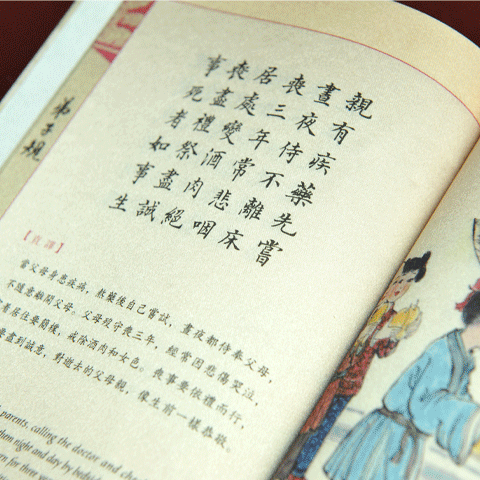 弟子規
親有疾藥先嘗
晝夜侍不離床
喪三年常悲咽
居處變酒肉絕
喪盡禮祭盡誠
事死者如事生
【直譯】
當父母身患疾病，熬藥後自己嘗試，晝夜都侍奉父母，
不隨意離開父母。父母歿守喪三年，經常因悲傷哭泣，
居住要簡樸，戒除酒肉和女色。喪事要依禮而行，
要盡到誠意，對逝去的父母親，像生前一樣恭敬。
parents, calling the doctor and
them night and day by
for three